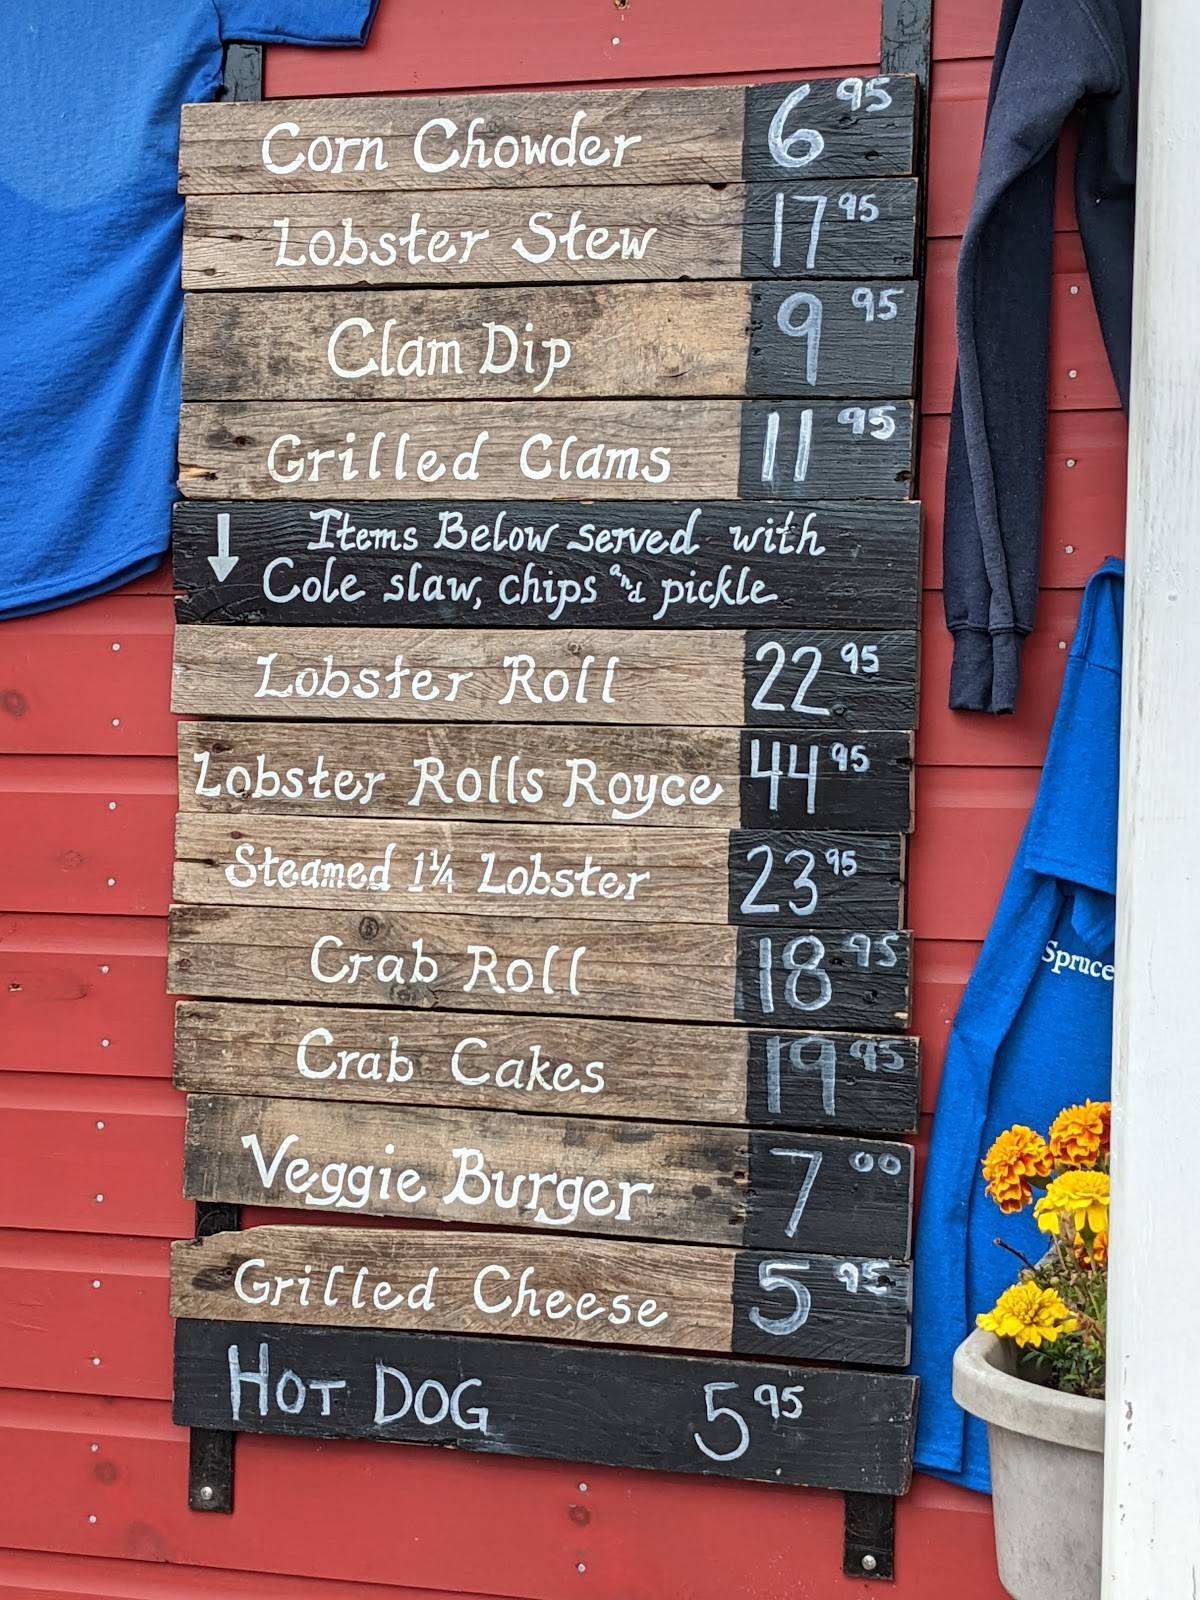 Corn Chowder 6 95
Lobster Stew 17 95
Clam Dip 9 95
Grilled Clams 11 95
↓ Items Below served with
Cole slaw, chips and pickle
Lobster Roll 22 95
Lobster Rolls Royce 44 95
Steamed 1¼ Lobster 23 95
Crab Roll 18 95
Crab Cakes 19 95
Spruce
Veggie Burger 7 00
Grilled Cheese 5 95
HOT DOG 5 95